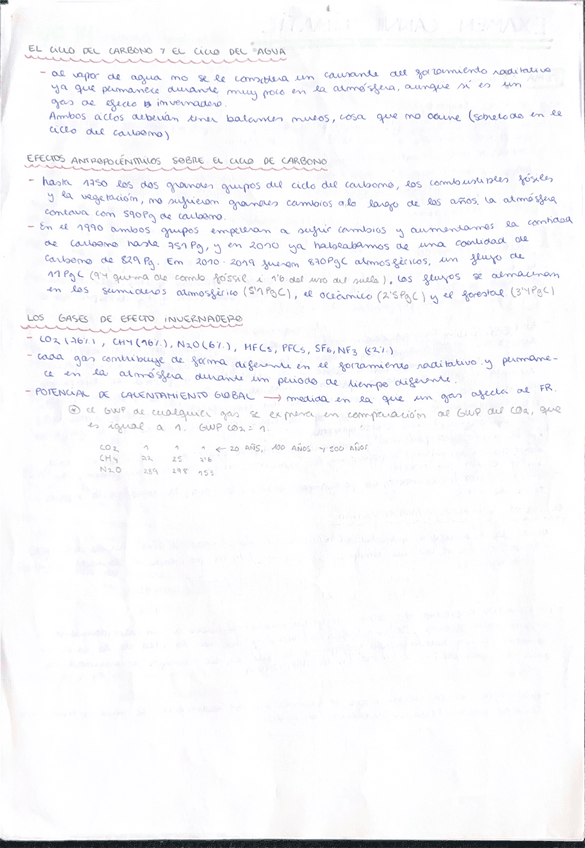 EL CICLO DEL CARBONO Y EL CICLO DEL AGUA
- al vapor de agua no se le considera un causante del forzamiento radiativo
ya que permanece durante muy poco en la atmósfera, aunque si es un
gas de efecto invernadero.
Ambos ciclos deberían tener balances nuevos, cosa que no ocurre (sobretodo en el
ciclo del carbono)
EFECTOS ANTROPOCÉNTRICOS SOBRE EL CICLO DE CARBONO
- hasta 1750 los dos grandes grupos del ciclo del carbono, los combustibles fósiles
y la vegetación, no sufrieron grandes cambios a lo largo de los años. La atmósfera
contava con 590Pg de carbono.
- En el 1990 ambos grupos empiezan a sufrir cambios y aumentamos la cantidad
de carbono hasta 751Pg, y en 2010 ya hablabamos de una cantidad de
carbono de 829Pg. Em 2010-2019 fueron 870PgC atmosféricos, un flujo de
11PgC (9'4 quema de comb fósil i 1'6 del uso del suelo), los flujos se almacenan
en los sumideros atmosférico (5'1PgC), el oceánico (2'5PgC) y el forestal (3'4PgC)
LOS GASES DE EFECTO INVERNADERO
- CO2 (76%), CH4 (16%), N2O (6%), HFCs, PFCs, SF6, NF3 (<2%)
- cada gas contribuye de forma diferente en el forzamiento radiativo y permane-
ce en la atmósfera durante un periodo de tiempo diferente.
- POTENCIAL DE CALENTAMIENTO GLOBAL → medida en la que un gas afecta al FR.
el GWP de cualquier gas se expresa en comparación al GWP del CO2, que
es igual a 1. GWP CO2 = 1.
CO2 1 1 1 ← 20 AÑOS, 100 AÑOS Y 500 AÑOS
CH4 72 25 7'6
N2O 289 298 153